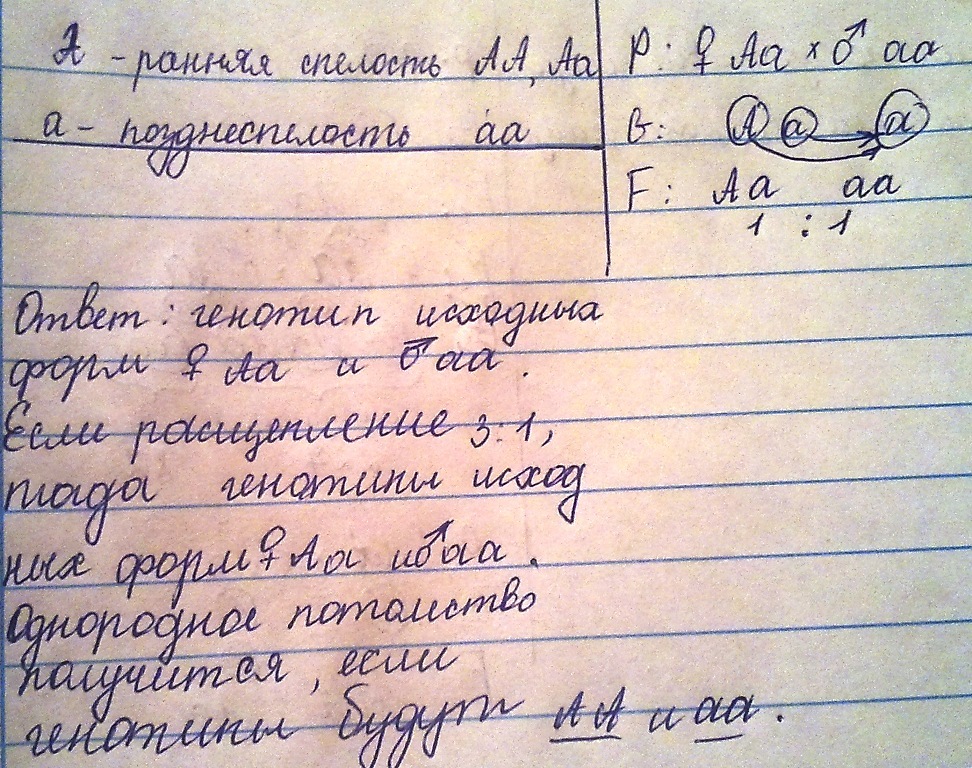 А - ранняя спелость АА, Аа
а - позднеспелость аа
Р: ♀ Аа × ♂ аа
G: А а а
F: Аа аа
1 : 1
Ответ: генотип исходных
форм ♀ Аа и ♂ аа.
Если расщепление 3:1,
тогда генотипы исход
ных форм ♀ Аа и ♂ аа.
Однородное потомство
получится, если
генотипы будут АА и аа.